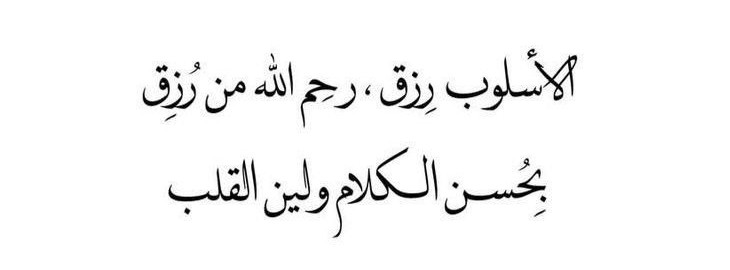 الأسلوب رِزق ، رحِم الله من رُزِق
بِحُسن الكلام ولين القلب